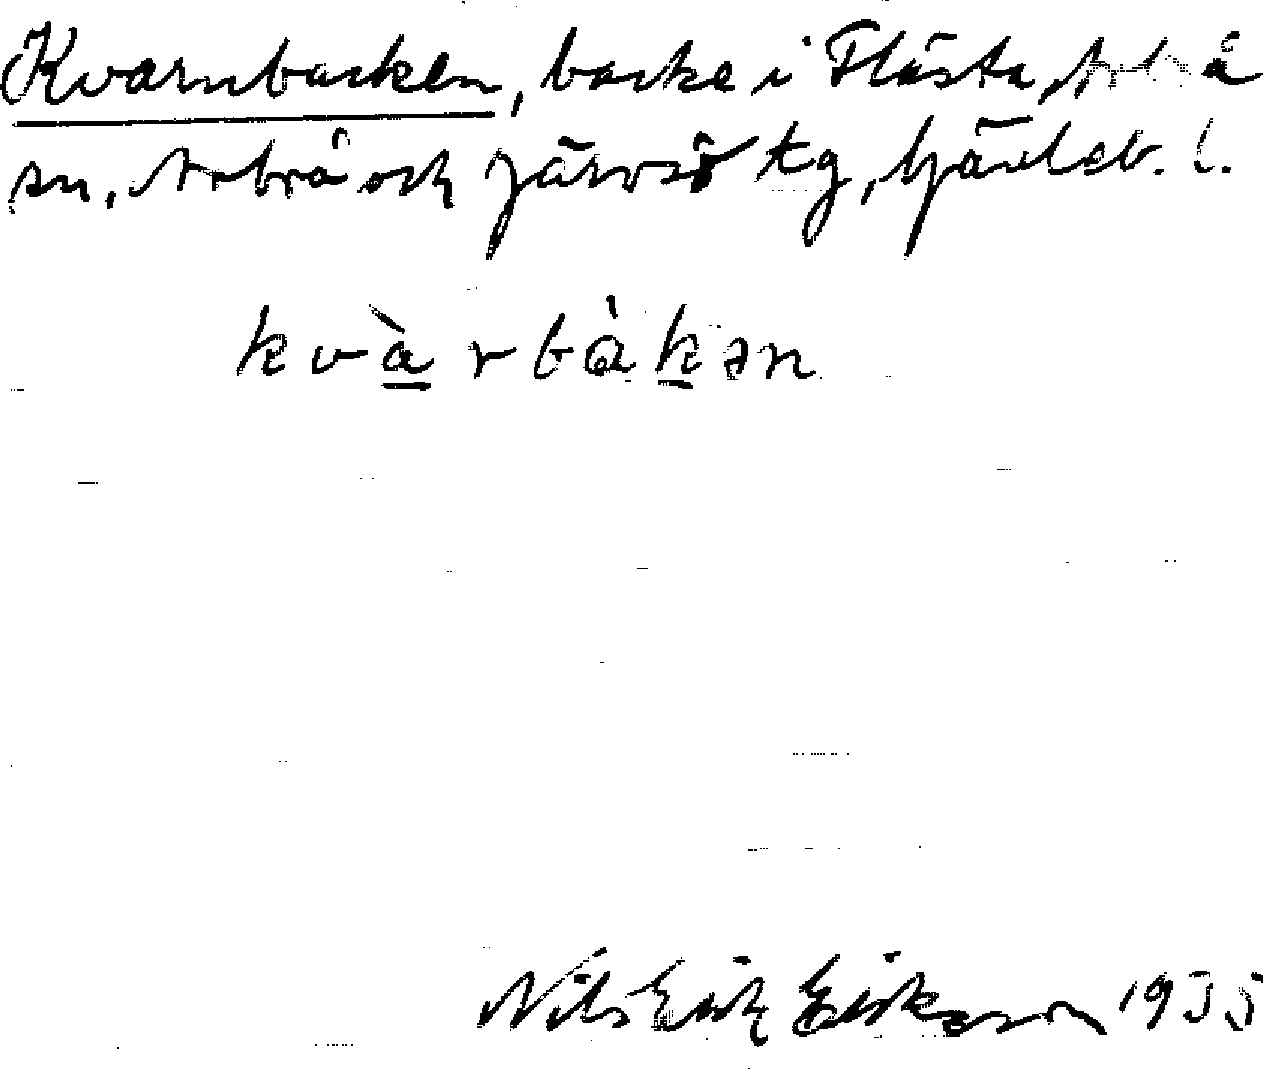 Kvarnbacken, backe i Flästa, Arbrå
sn, Arbrå och Järvsö tg, Gävleb. l.
kvàrbàkən
Nils Erik Eriksson 1935